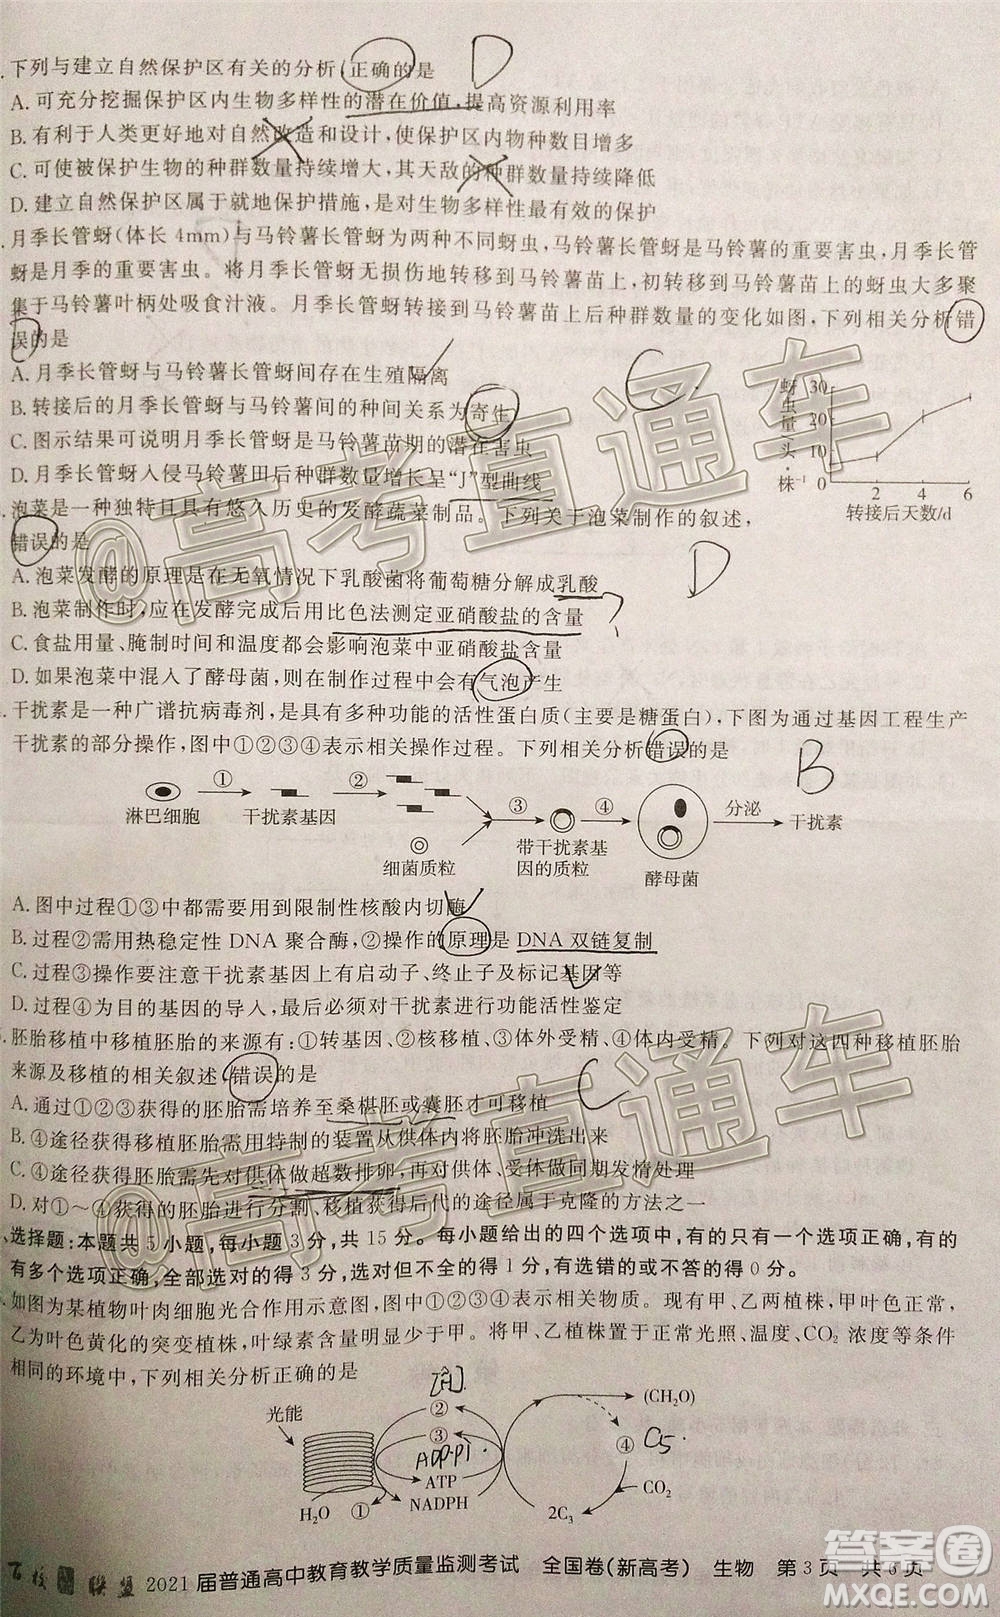 下列与建立自然保护区有关的分析,正确的是 D
A.可充分挖掘保护区内生物多样性的潜在价值,提高资源利用率
B.有利于人类更好地对自然改造和设计,使保护区内物种数目增多
C.可使被保护生物的种群数量持续增大,其天敌的种群数量持续降低
D.建立自然保护区属于就地保护措施,是对生物多样性最有效的保护
月季长管蚜(体长4mm)与马铃薯长管蚜为两种不同蚜虫,马铃薯长管蚜是马铃薯的重要害虫,月季长管
蚜是月季的重要害虫。将月季长管蚜无损伤地转移到马铃薯苗上,初转移到马铃薯苗上的蚜虫大多聚
集于马铃薯叶柄处吸食汁液。月季长管蚜转接到马铃薯苗上后种群数量的变化如图,下列相关分析错
误的是
A.月季长管蚜与马铃薯长管蚜间存在生殖隔离
B.转接后的月季长管蚜与马铃薯间的种间关系为寄生
C.图示结果可说明月季长管蚜为马铃薯苗期的潜在害虫
D.月季长管蚜入侵马铃薯田后种群数量增长呈“J”型曲线
蚜虫量/头·株-1
30
20
10
0 2 4 6
转接后天数/d
泡菜是一种独特且具有悠久历史的发酵蔬菜制品。下列关于泡菜制作的叙述,
错误的是
D
A.泡菜发酵的原理是在无氧情况下乳酸菌将葡萄糖分解成乳酸
B.泡菜制作时,应在发酵完成后用比色法测定亚硝酸盐的含量 ?
C.食盐用量、腌制时间和温度都会影响泡菜中亚硝酸盐含量
D.如果泡菜中混入了酵母菌,则在制作过程中会有气泡产生
干扰素是一种广谱抗病毒剂,是具有多种功能的活性蛋白质(主要是糖蛋白),下图为通过基因工程生产
干扰素的部分操作,图中①②③④表示相关操作过程。下列相关分析错误的是 B
淋巴细胞 ① 干扰素基因 ② 细菌质粒 ③ 带干扰素基因的质粒 ④ 酵母菌 分泌 干扰素
A.图中过程①③中都需要用到限制性核酸内切酶
B.过程②需用热稳定性DNA聚合酶,②操作的原理是DNA双链复制
C.过程③操作要注意干扰素基因两端具有启动子、终止子及标记基因等
D.过程④为目的基因的导入,最后必须对干扰素进行功能活性鉴定
胚胎移植中移植胚胎的来源有:①转基因、②核移植、③体外受精、④体内受精。下列对这四种移植胚胎
来源及移植的相关叙述错误的是 C
A.①②③途径获得的胚胎需培养至桑椹胚或囊胚才可移植
B.④途径获得移植胚胎需用特制的装置从供体内把胚胎冲洗出来
C.④途径获得胚胎需先对供体做超数排卵,再对供体、受体做同期发情处理
D.对①~④获得的胚胎进行分割、移植获得后代的途径属于克隆的方法之一
选择题:本题共5小题,每小题3分,共15分。每小题给出的四个选项中,有的只有一个选项正确,
有多个选项正确,全部选对的得3分,选对但不全的得1分,有选错的或不答的得0分。
如图为某植物叶肉细胞光合作用示意图,其中①②③④表示相关物质。现有甲、乙两植株,甲叶色正常,
乙为叶色黄化的突变植株,叶绿素含量明显少于甲。将甲、乙植株置于正常光照、温度、CO2浓度等条件
相同的环境中,下列相关分析正确的是
[H]
光能 ② ③ (CH2O)
ADP.Pi ④ C5
ATP CO2
H2O ① NADPH 2C3
百校联盟 2021届普通高中教育教学质量监测考试 全国卷(新高考) 生物 第3页 共6页
@高考直通车
@高考直通车
答案圈
MXQE.COM